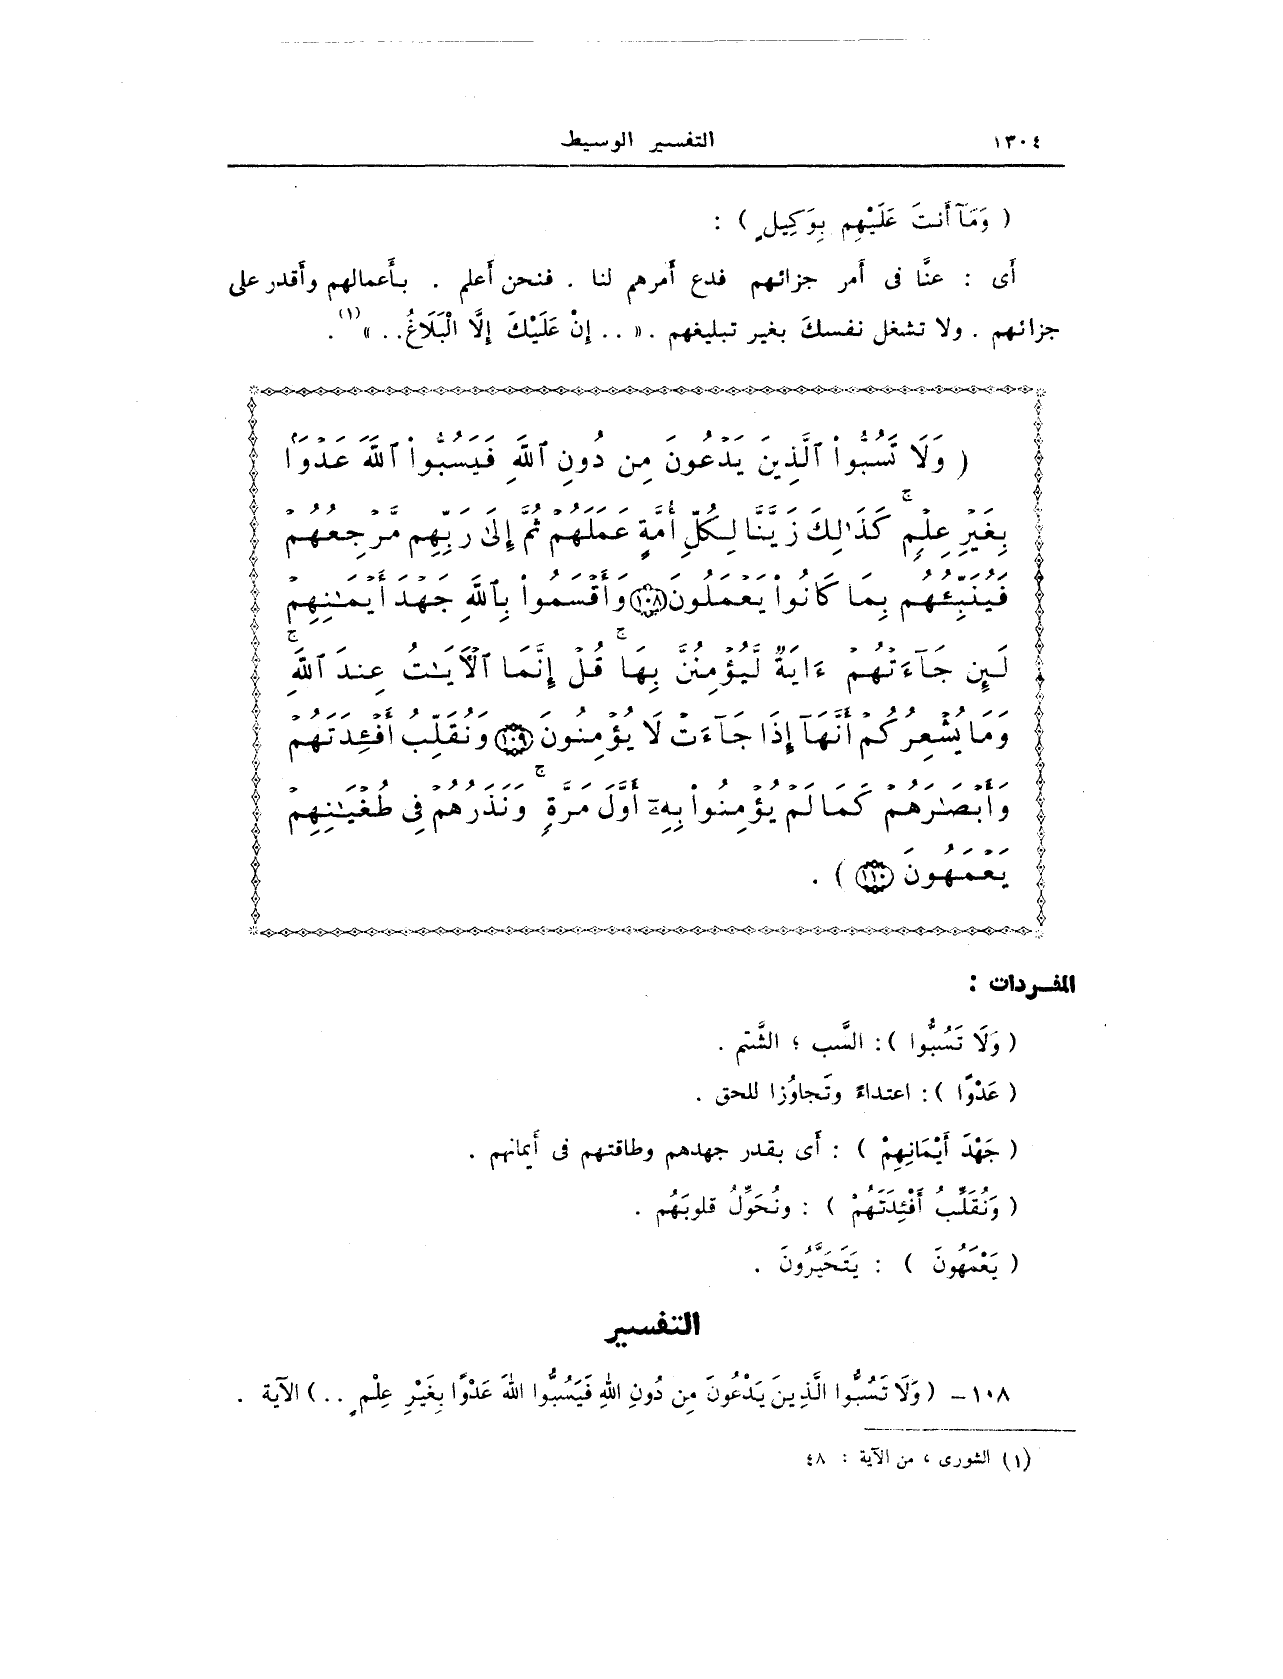 ١٣٠٤ التفسير الوسيط
( وَمَآ أَنتَ عَلَيْهِم بِوَكِيلٍ ) :
أَى : عنَّا فى أَمر جزائهم فدع أَمرهم لنا . فنحن أَعلم . بأَعمالهم وأَقدر على
جزائهم . ولا تشغل نفسكَ بغير تبليغهم . « .. إِنْ عَلَيْكَ إِلَّا الْبَلَاغُ .. » (١) .
( وَلَا تَسُبُّوا۟ ٱلَّذِينَ يَدْعُونَ مِن دُونِ ٱللَّهِ فَيَسُبُّوا۟ ٱللَّهَ عَدْوًۢا
بِغَيْرِ عِلْمٍۢ ۚ كَذَٰلِكَ زَيَّنَّا لِكُلِّ أُمَّةٍ عَمَلَهُمْ ثُمَّ إِلَىٰ رَبِّهِم مَّرْجِعُهُمْ
فَيُنَبِّئُهُم بِمَا كَانُوا۟ يَعْمَلُونَ ١٠٨ وَأَقْسَمُوا۟ بِٱللَّهِ جَهْدَ أَيْمَـٰنِهِمْ
لَئِن جَآءَتْهُمْ ءَايَةٌ لَّيُؤْمِنُنَّ بِهَا ۚ قُلْ إِنَّمَا ٱلْـَٔايَـٰتُ عِندَ ٱللَّهِ ۖ
وَمَا يُشْعِرُكُمْ أَنَّهَآ إِذَا جَآءَتْ لَا يُؤْمِنُونَ ١٠٩ وَنُقَلِّبُ أَفْـِٔدَتَهُمْ
وَأَبْصَـٰرَهُمْ كَمَا لَمْ يُؤْمِنُوا۟ بِهِۦٓ أَوَّلَ مَرَّةٍ ۚ وَنَذَرُهُمْ فِى طُغْيَـٰنِهِمْ
يَعْمَهُونَ ١١٠ ) .
المفردات :
( وَلَا تَسُبُّوا ) : السَّب ؛ الشَّتم .
( عَدْوًا ) : اعتداءً وتَجاوُزا للحق .
( جَهْدَ أَيْمَانِهِمْ ) : أَى بقدر جهدهم وطاقتهم فى أَيمانهم .
( وَنُقَلِّبُ أَفْئِدَتَهُمْ ) : ونُحَوِّلُ قلوبَهُم .
( يَعْمَهُونَ ) : يَتَحَيَّرُونَ .
التفسير
١٠٨ – ( وَلَا تَسُبُّوا الَّذِينَ يَدْعُونَ مِن دُونِ اللهِ فَيَسُبُّوا اللهَ عَدْوًا بِغَيْرِ عِلْمٍ .. ) الآية .
(١) الشورى ، من الآية : ٤٨